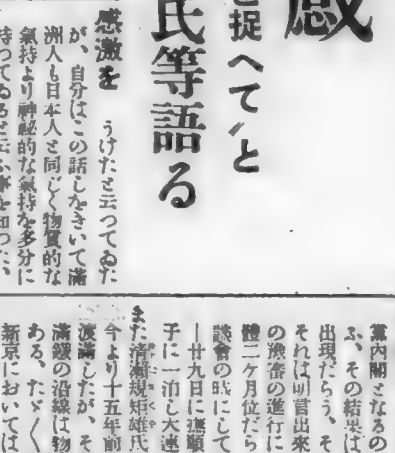 感
と捉へて〃と
氏等語る
感激を
うけたと云つてゐた
が、自分はこの話しをきいて滿
洲人も日本人と同じく物質的な
氣持より神秘的な氣持を多分に
持つてゐると云ふ事を知つた、
黨內閣となるの
ふ、その結果は
出現だらう、そ
それは明言出來
の豫審の進行に
體二ケ月位だら
談會の時にして
―廿九日に撫順
子に一泊し大連
また淸瀨規矩雄氏
今より十五年前
渡滿したが、そ
滿鐵の沿線は物
ある、たゞ〱
新京においては